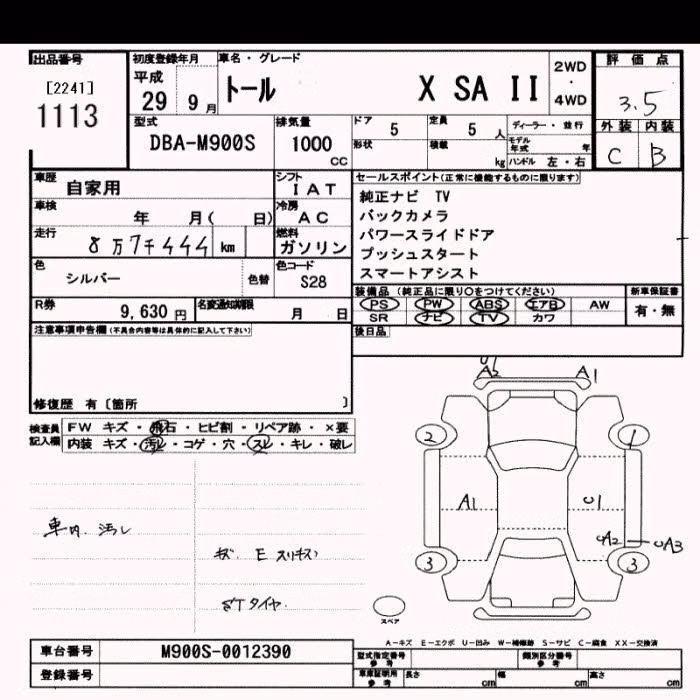 出品番号 初度登録年月 車名・グレード 評価点
[2241] 平成 トール X SA II 2WD・4WD
1113 29 9月 3.5
型式 排気量 ドア 5 定員 5人 ディーラー・並行 外装 内装
DBA-M900S 1000cc 形状 積載 kg モデル年式 年 C B
ハンドル 左・右
車歴 自家用 シフト IAT セールスポイント(正常に機能するものに限ります)
車検 年 月( 日) 冷房 AC 純正ナビ TV
走行 8万7千444km 燃料 ガソリン バックカメラ
パワースライドドア
色 シルバー 色替 色コード S28 プッシュスタート
スマートアシスト
R券 9,630円 名変通知期限 月 日 装備品(純正品に限り○をつけてください) 新車保証書
PS PW ABS エアB AW 有・無
SR ナビ TV カワ
注意事項申告欄(不具合内容等は具体的に記入して下さい) 後日品
修復歴 有〔箇所 〕
検査員記入欄 FW キズ・飛石・ヒビ割・リペア跡・×要
内装 キズ・汚レ・コゲ・穴・スレ・キレ・破レ
U1
A2 A1
2 1
A1 U1
UA2 UA3
3 3
車内 汚レ
E スリキズ
STタイヤ
スペア
A-キズ E-エクボ U-凹み W-補修跡 S-サビ C-腐食 XX-交換済
車台番号 M900S-0012390 型式指定番号 参考 類別区分番号 参考
登録番号 車庫証明用 参考 長さ cm 幅 cm 高さ cm